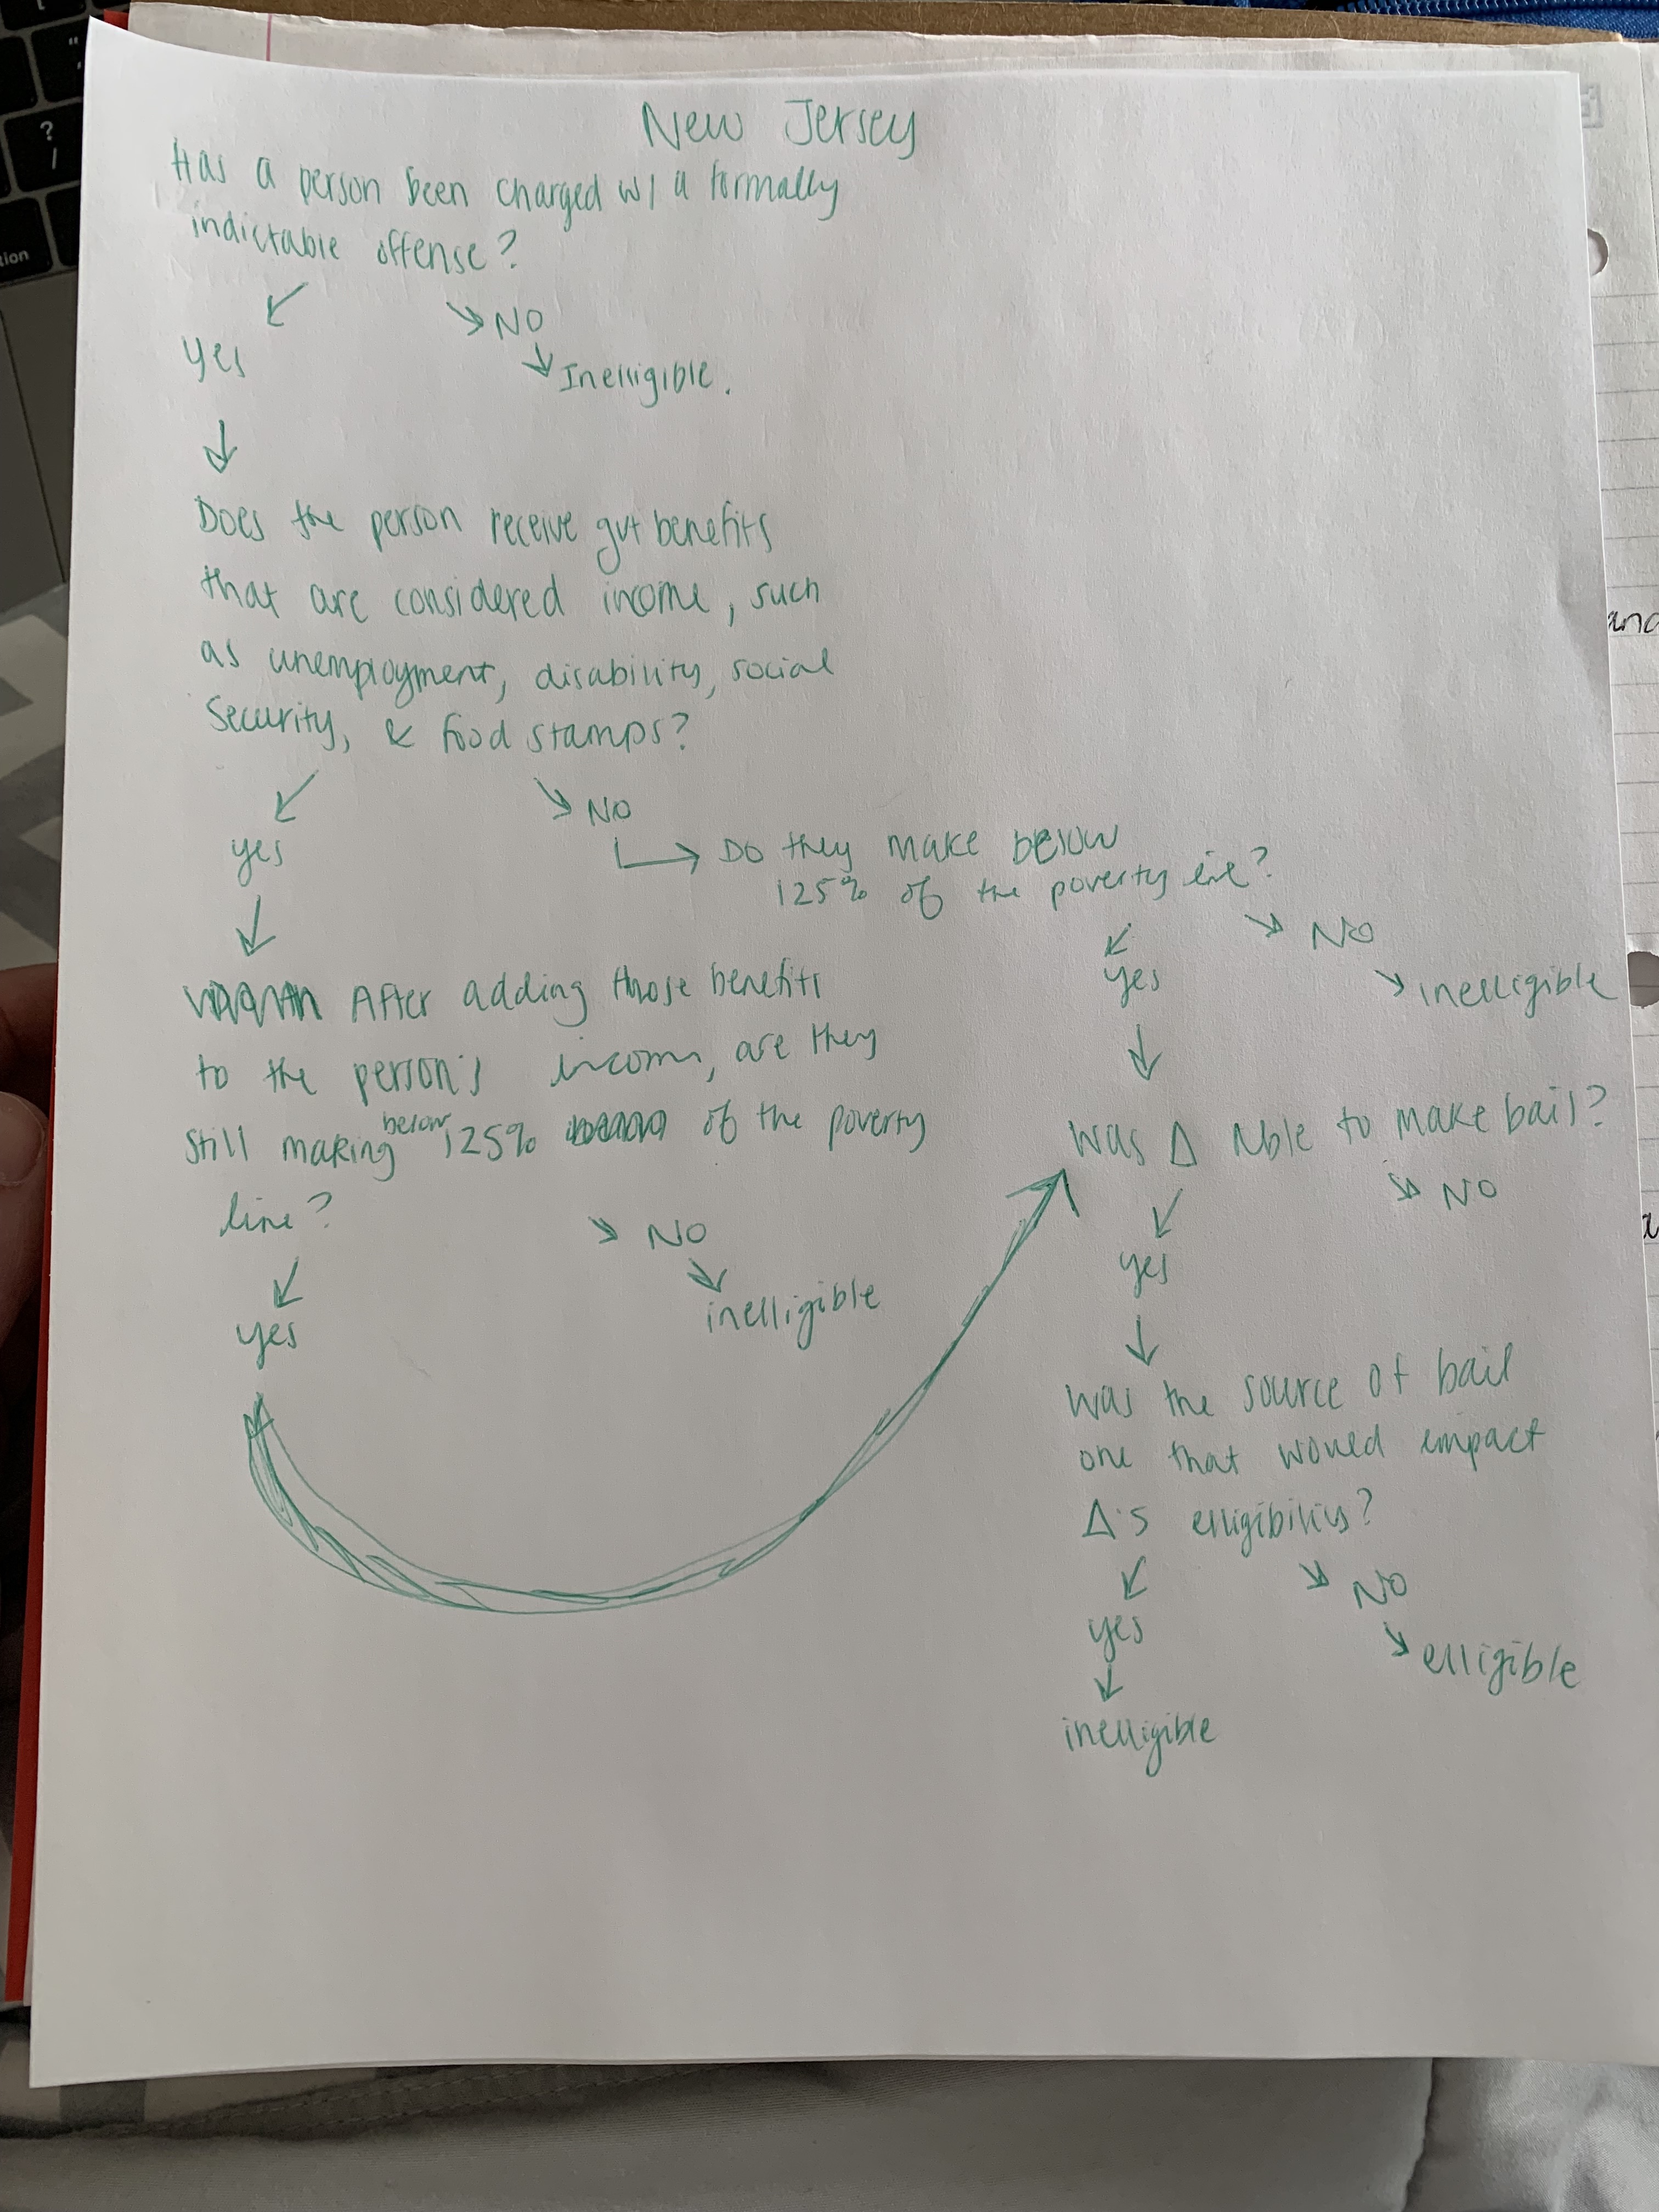 New Jersey
Has a person been charged w/ a formally
indictable offense?
yes
NO
Inelligible.
Does the person receive gvt benefits
that are considered income, such
as unemployment, disability, social
Security, & food stamps?
yes
NO
Do they make below
125% of the poverty line?
yes
NO
inelligible
After adding those benefits
to the person's income, are they
still making below 125% of the poverty
line?
NO
inelligible
yes
Was Δ Able to make bail?
NO
yes
Was the source of bail
one that would impact
Δ's elligibility?
yes
NO
elligible
inelligible
and